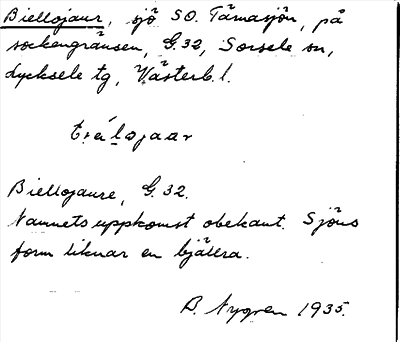 Biellojaur, sjö SO. Tärnasjön, på
sockengränsen, G.32, Sorsele sn,
Lycksele tg, Västerb. l.
Biellojaure, G. 32.
Namnets uppkomst obekant. Sjöns
form liknar en bjällra.
B. Nygren 1935.